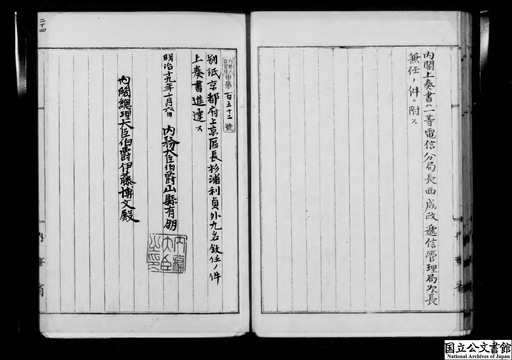 内閣上奏書ハ二等電信分局長西成政逓信管理局次長
兼任ノ件ニ附ス
第百五十三號
別紙京都府上京區長杉浦利貞外九名敘任ノ件
上奏書進達ス
明治十九年十月六日 内務大臣伯爵山縣有朋
内務大臣之印
内閣總理大臣伯爵伊藤博文殿
二十四
国立公文書館
National Archives of Japan